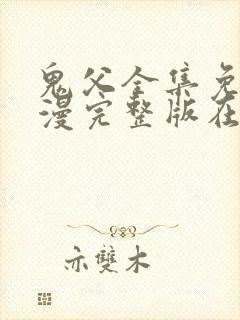 鬼父全集免
漫完整版在
亦雙木